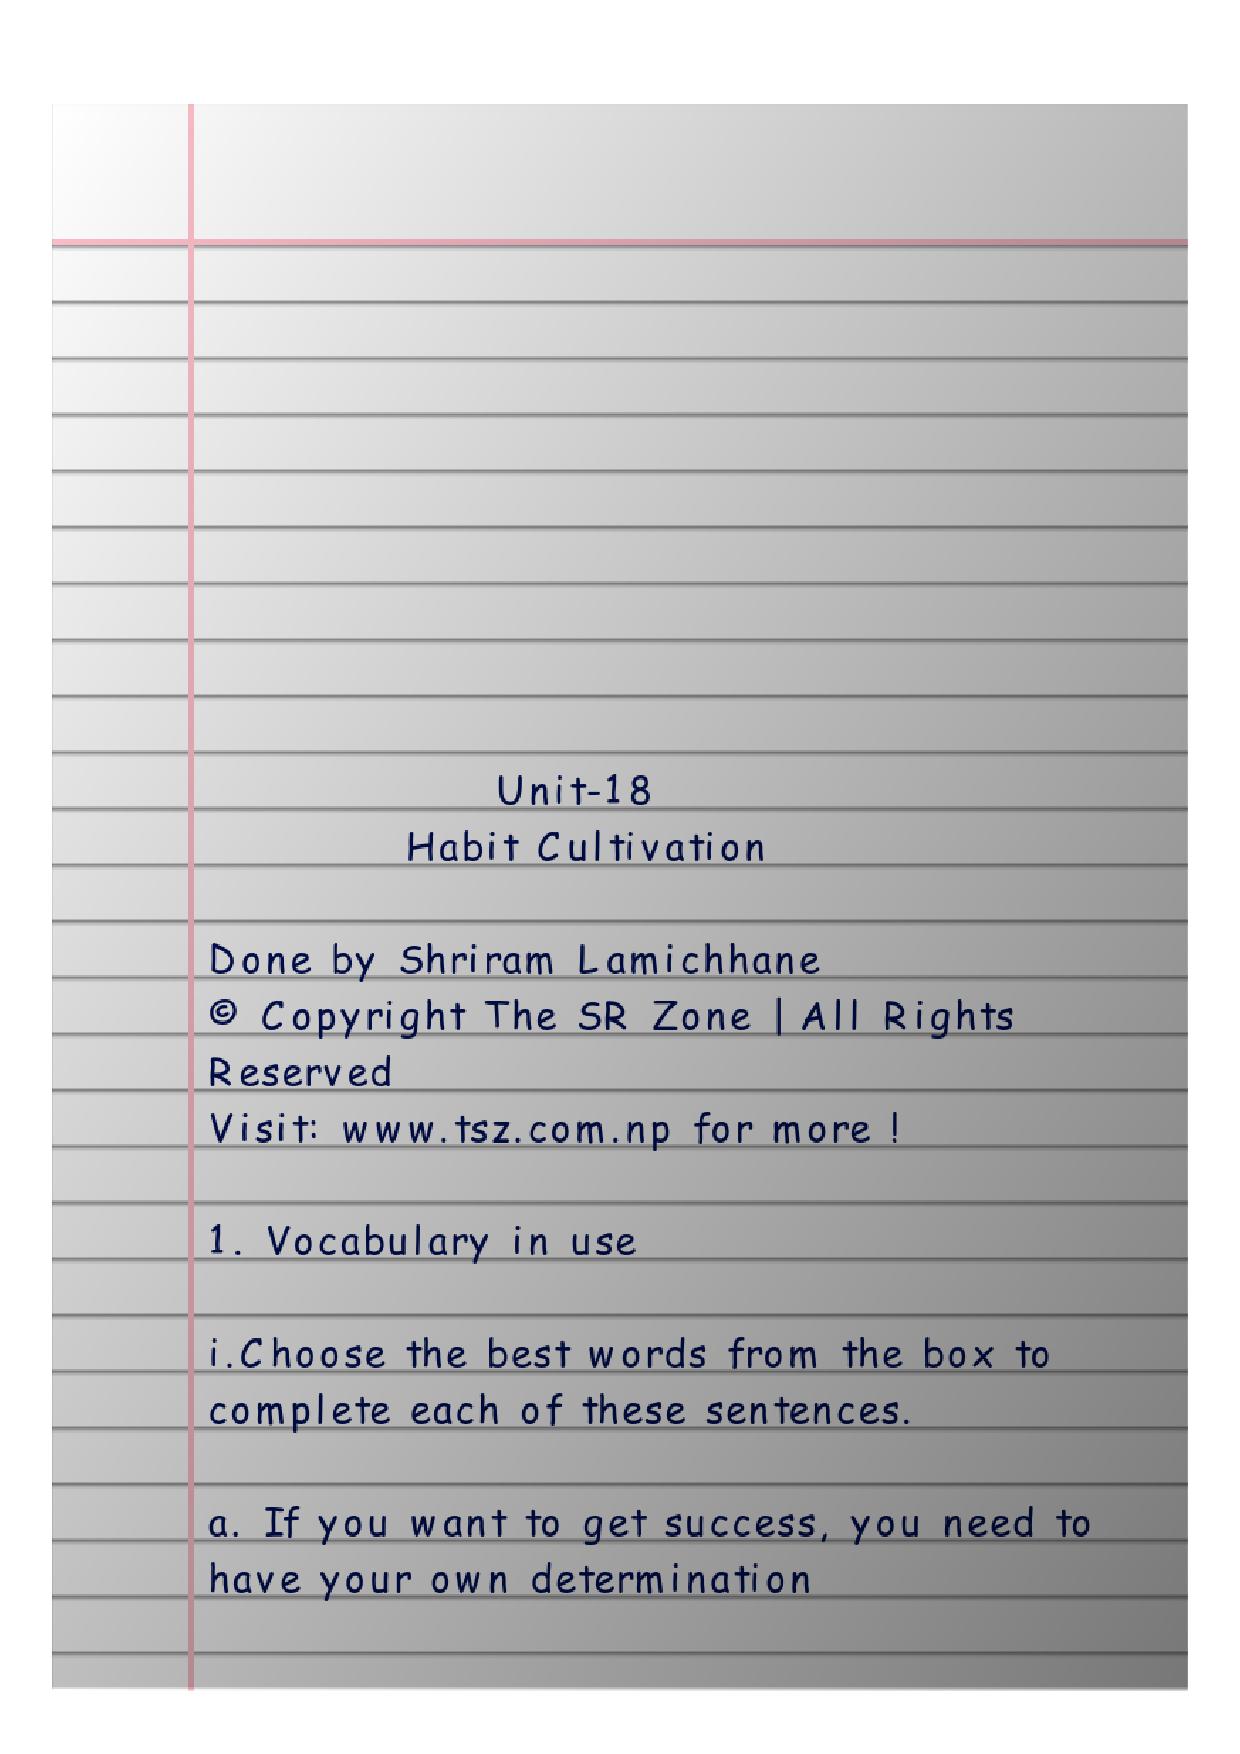 Unit-18
Habit Cultivation
Done by Shriram Lamichhane
© Copyright The SR Zone | All Rights
Reserved
Visit: www.tsz.com.np for more !
1. Vocabulary in use
i.Choose the best words from the box to
complete each of these sentences.
a. If you want to get success, you need to
have your own determination